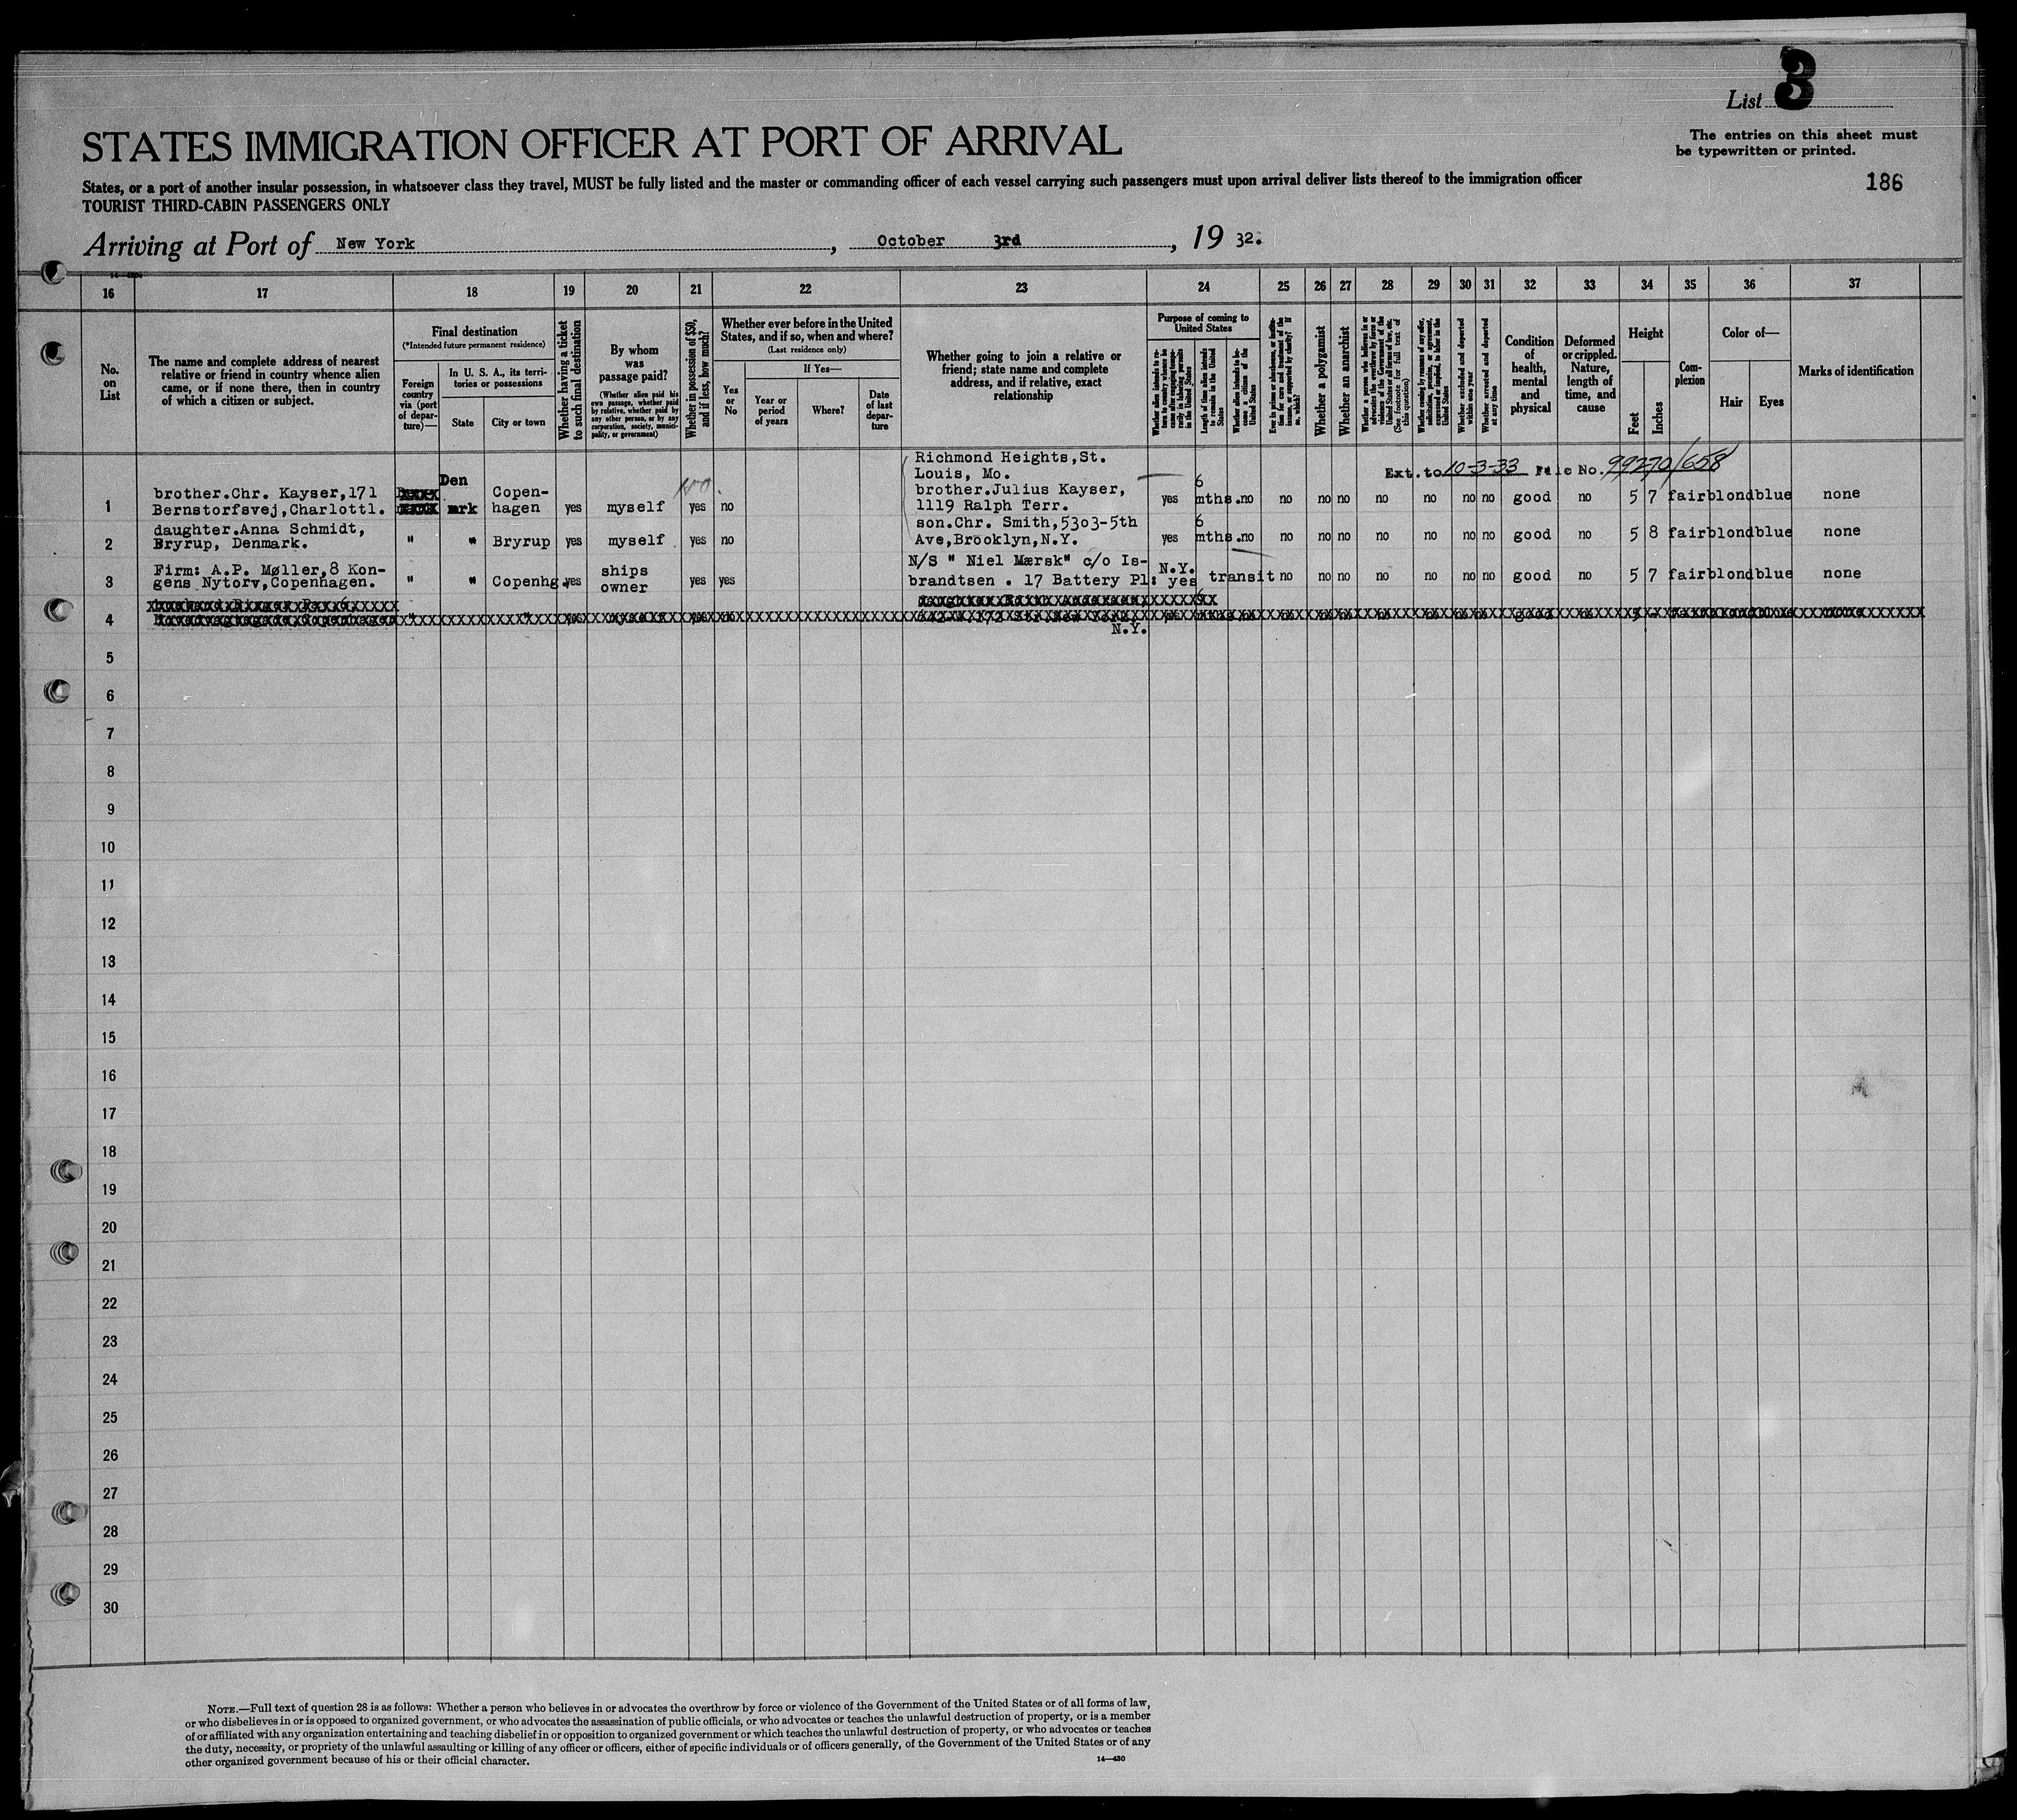 List 3
STATES IMMIGRATION OFFICER AT PORT OF ARRIVAL
The entries on this sheet must
be typewritten or printed.
States, or a port of another insular possession, in whatsoever class they travel, MUST be fully listed and the master or commanding officer of each vessel carrying such passengers must upon arrival deliver lists thereof to the immigration officer
186
TOURIST THIRD-CABIN PASSENGERS ONLY
Arriving at Port of New York, October 3rd, 19 32.
16 17 18 19 20 21 22 23 24 25 26 27 28 29 30 31 32 33 34 35 36 37
No.
on
List
The name and complete address of nearest
relative or friend in country whence alien
came, or if none there, then in country
of which a citizen or subject.
Final destination
(*Intended future permanent residence)
Foreign
country
via (port
of depar-
ture)—
In U. S. A., its terri-
tories or possessions
State
City or town
Whether having a ticket
to such final destination
By whom
was
passage paid?
(Whether alien paid his
own passage, whether paid
by relative, whether paid by
any other person, or by any
corporation, society, munici-
pality, or government)
Whether in possession of $50,
and if less, how much?
Whether ever before in the United
States, and if so, when and where?
(Last residence only)
Yes
or
No
If Yes—
Year or
period
of years
Where?
Date
of last
depar-
ture
Whether going to join a relative or
friend; state name and complete
address, and if relative, exact
relationship
Purpose of coming to
United States
Whether alien intends to re-
turn to country whence he
came after engaging tempo-
rarily in laboring pursuits
in the United States
Length of time alien intends
to remain in the United
States
Whether alien intends to be-
come a citizen of the
United States
Ever in prison or almshouse, or institu-
tion for care and treatment of the
insane, or supported by charity? If
so, which?
Whether a polygamist
Whether an anarchist
Whether a person who believes in or
advocates the overthrow by force or
violence of the Government of the
United States or all forms of law, etc.
(See footnote for full text of
this question)
Whether coming by reason of any offer,
solicitation, promise, or agreement,
expressed or implied, to labor in the
United States
Whether excluded and deported
within one year
Whether arrested and deported
at any time
Condition
of
health,
mental
and
physical
Deformed
or crippled.
Nature,
length of
time, and
cause
Height
Feet
Inches
Com-
plexion
Color of—
Hair
Eyes
Marks of identification
Richmond Heights,St.
Louis, Mo.
Ext. to 10-3-33 File No. 99270/658
1 brother.Chr. Kayser,171 Den Copen- no. brother.Julius Kayser, 6
Bernstorfsvej,Charlottl. mrk hagen yes myself yes no 1119 Ralph Terr. yes mths. no no no no no no no no good no 5 7 fair blond blue none
2 daughter.Anna Schmidt, son.Chr. Smith,5303-5th 6
Bryrup, Denmark. " " Bryrup yes myself yes no Ave,Brooklyn,N.Y. yes mths. no no no no no no no no good no 5 8 fair blond blue none
3 Firm: A.P. Møller,8 Kon- ships N/S " Niel Mærsk" c/o Is- N.Y.
gens Nytorv,Copenhagen. " " Copenhg. yes owner yes yes brandtsen . 17 Battery Pl: yes transit no no no no no no no good no 5 7 fair blond blue none
4
N.Y.
5
6
7
8
9
10
11
12
13
14
15
16
17
18
19
20
21
22
23
24
25
26
27
28
29
30
NOTE.—Full text of question 28 is as follows: Whether a person who believes in or advocates the overthrow by force or violence of the Government of the United States or of all forms of law,
or who disbelieves in or is opposed to organized government, or who advocates the assassination of public officials, or who advocates or teaches the unlawful destruction of property, or is a member
of or affiliated with any organization entertaining and teaching disbelief in or opposition to organized government or which teaches the unlawful destruction of property, or who advocates or teaches
the duty, necessity, or propriety of the unlawful assaulting or killing of any officer or officers, either of specific individuals or of officers generally, of the Government of the United States or of any
other organized government because of his or their official character.
14—430